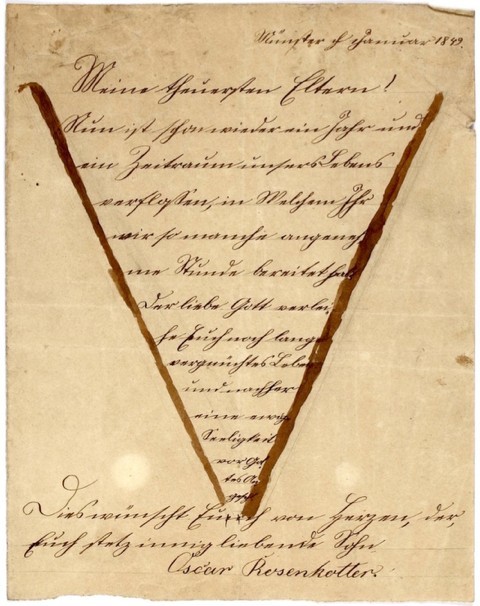 Münster d Januar 1849.
Meine theuersten Eltern!
Nun ist schon wieder ein Jahr und
ein Zeitraum unsers Lebens
verflossen, in Welchem Ihr
wir so manche angeneh
me Stunde bereitet habt
Der liebe Gott verlei,
he Euch noch lange
vergnüchtes Leben
und nachher
eine ewige
Seeligkeit
vor Got
tes
Dies wünscht Euch von Herzen, der,
Euch stetz innig liebende Sohn
Oscar Rosenkotter.